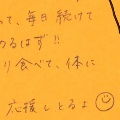 って、毎日続けて
かるはず!!
り食べて、体に
応援しとるよ